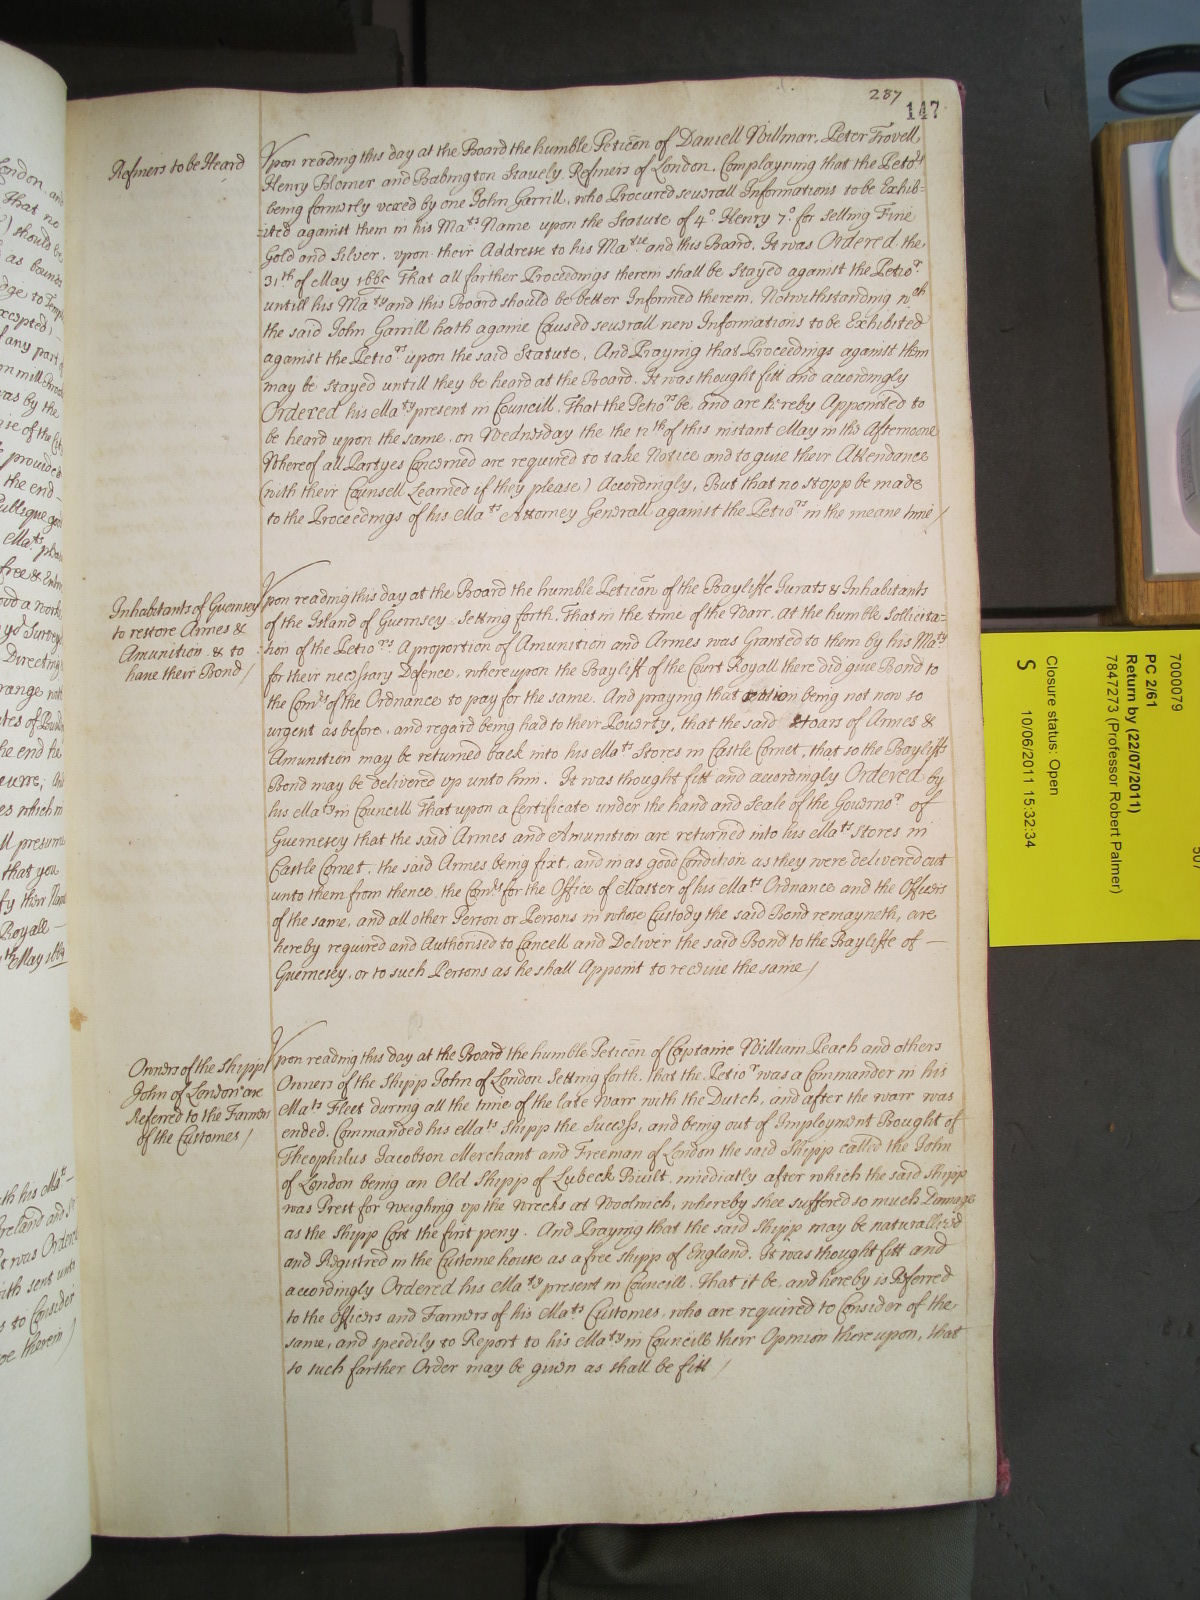 287
147
Refiners to be Heard
Vpon reading this day at the Board the humble Peticōn of Daniell Willmar, Peter Trovell
Henry Blomer and Babington Stavely Refiners of London, Complayning that the Petiors
being formerly vexed by one John Garrill, who Procured severall Informations to be Exhib-
ited against them in his Mats Name upon the Statute of 4o Henry 7o for selling Fine
Gold and Silver, vpon their Addresse to his Matie and this Board, It was Ordered the
31th of May That all farther Proceedings therein shall be Stayed against the Petiors
untill his Maty and this Board should be better Informed therein, Notwithstanding wch
the said John Garrill hath againe Caused severall new Informations to be Exhibited
against the Petiors upon the said Statute, And Praying that Proceedings against them
may be stayed untill they be heard at the Board. It was thought fitt and accordingly
Ordered his Maty present in Councill, That the Petiors be, and are hereby Appointed to
be heard upon the same, on Wednesday the the 12th of this instant May in the Afternoone
Whereof all Partyes Concerned are required to take Notice and to giue their Attendance
(with their Counsell Learned if they please) Accordingly, But that no stopp be made
to the Proceedings of his Mats Attorney Generall against the Petiors in the meane time /
Inhabitants of Guernsey
to restore Armes &
Amunition & to
haue their Bond /
Vpon reading this day at the Board the humble Peticōn of the Bayliffe Jurats & Inhabitants
of the Island of Guernsey Setting forth, That in the time of the Warr, at the humble Sollicita-
tion of the Petiors A proportion of Amunition and Armes was Granted to them by his Maty
for their necessary Defence, whereupon the Bayliff of the Court Royall there did giue Bond to
the Comrs of the Ordnance to pay for the same. And praying that being not now so
urgent as before, and regard being had to their Pouerty, that the said Stoars of Armes &
Amunition may be returned back into his Mats Stores in Castle Cornet, that so the Bayliffs
Bond may be delivered vp unto him. It was thought fitt and accordingly Ordered by
his Maty in Councill That upon a Certificate under the hand and Seale of the Governor of
Guernesey that the said Armes and Amunition are returned into his Mats Stores in
Castle Cornet, the said Armes being fixt, and in as good Condition as they were delivered out
unto them from thence, the Comrs for the Office of Master of his Mats Ordnance and the Officers
of the same, and all other Person or Persons in whose Custody the said Bond remayneth, are
hereby required and Authorised to Cancell and Deliver the said Bond to the Bayliffe of —
Guernesey, or to such Persons as he shall Appoint to receiue the same /
Owners of the Shipp
John of London are
Referred to the Farmers
of the Customes /
Vpon reading this day at the Board the humble Peticōn of Captaine William Peach and others
Owners of the Shipp John of London Setting forth, that the Petior was a Commander in his
Mats Fleet during all the time of the late Warr with the Dutch, and after the warr was
ended, Commanded his Mats Shipp the Sucesse, and being out of Imployment Bought of
Theophilus Jacobson Merchant and Freeman of London the said Shipp called the John
of London being an Old Shipp of Lubeck Built, imediatly after which the said Shipp
was Prest for weighing up the Wrecks at Woolwich, whereby shee suffered so much Damage
as the Shipp Cost the first peny. And Praying that the said Shipp may be naturallized
and Registred in the Custome house as a free Shipp of England. It was thought fitt and
accordingly Ordered his Maty present in Councill, That it be, and hereby is Referred
to the Officers and Farmers of his Mats Customes, who are required to Consider of the
same, and speedily to Report to his Maty in Councill their Opinion thereupon, that
so such farther Order may be given as shall be fitt /
7000079
PC 2/61
Return by (22/07/2011)
7847273 (Professor Robert Palmer)
Closure status: Open
S 10/06/2011 15:32:34